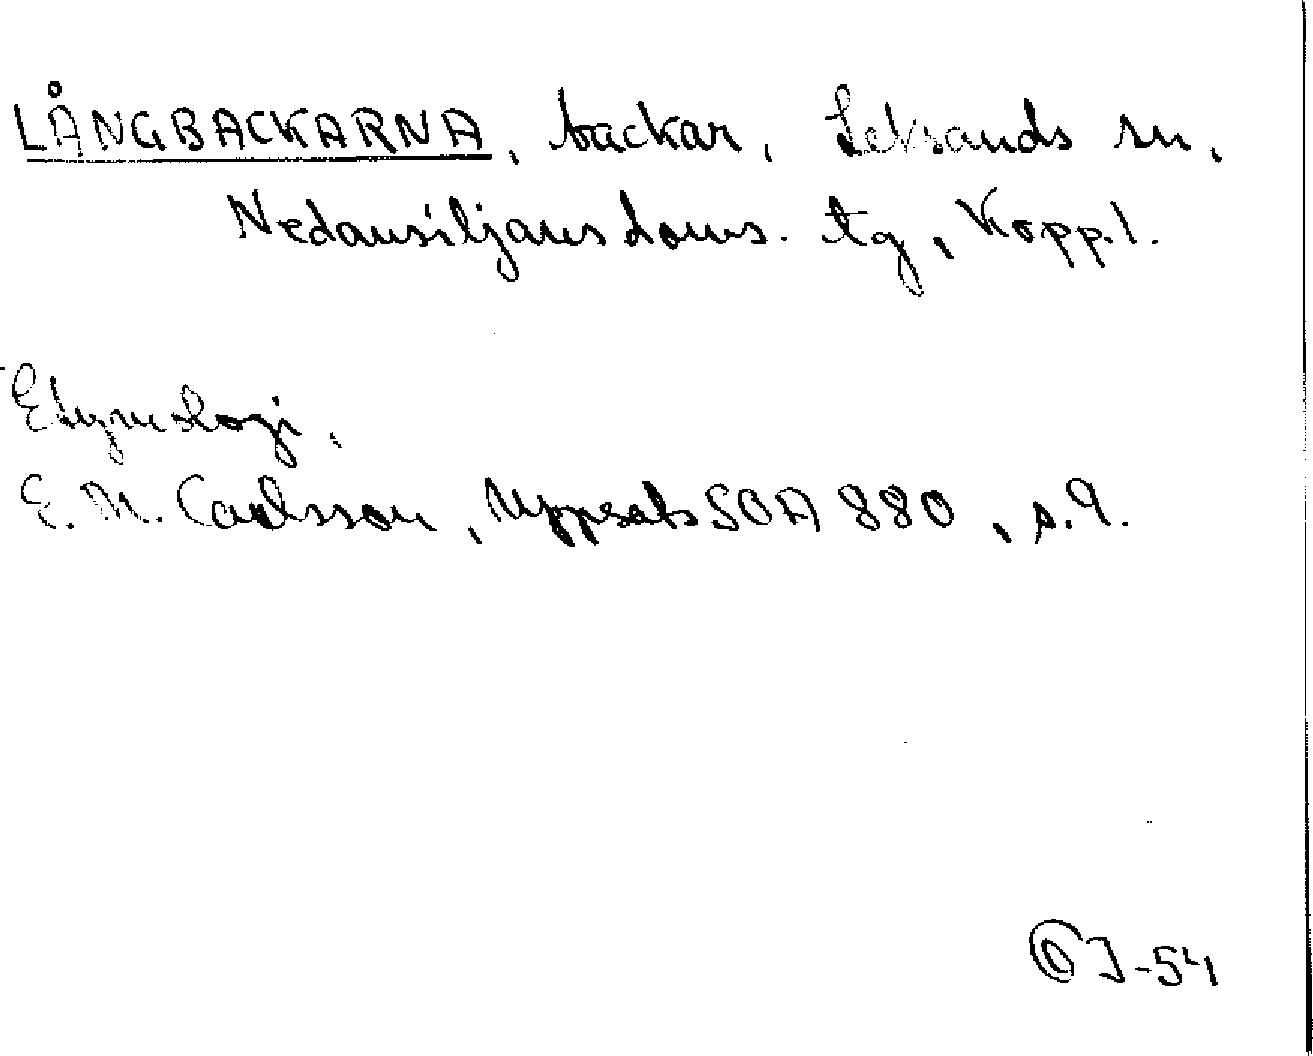 LÅNGBACKARNA, backar, Leksands sn,
Nedansiljans doms. tg, Kopp. l.
Etymologi.
E. M. Carlsson, Uppsats SOA 880, s. 9.
J-54